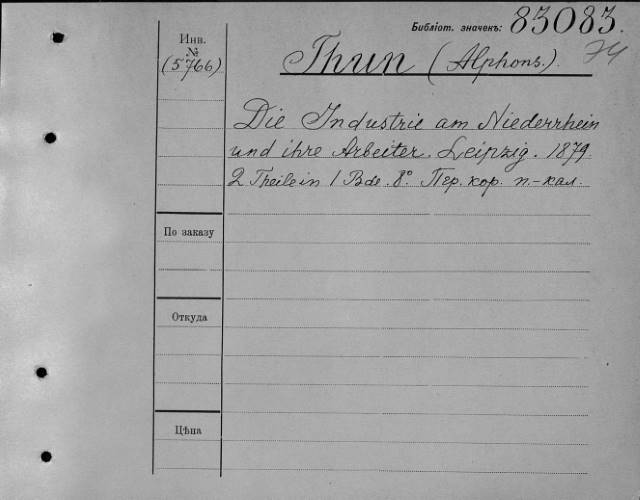 Библіот. значекъ: 83083.
74
Инв.
№
(5766)
Thun (Alphons.).
Die Industrie am Niederrhein
und ihre Arbeiter. Leipzig. 1879.
2 Theile in 1 Bde. 8°. Пер. кор. п.-кал.
По заказу
Откуда
Цѣна